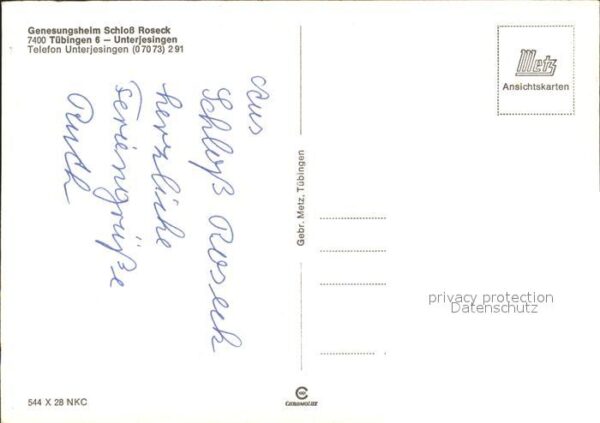 Genesungsheim Schloß Roseck
7400 Tübingen 6 — Unterjesingen
Telefon Unterjesingen (0 70 73) 2 91
Aus
Schloß Roseck
herzliche
Feriengrüße
Ruth
Gebr. Metz, Tübingen
Metz
Ansichtskarten
privacy protection
Datenschutz
544 X 28 NKC